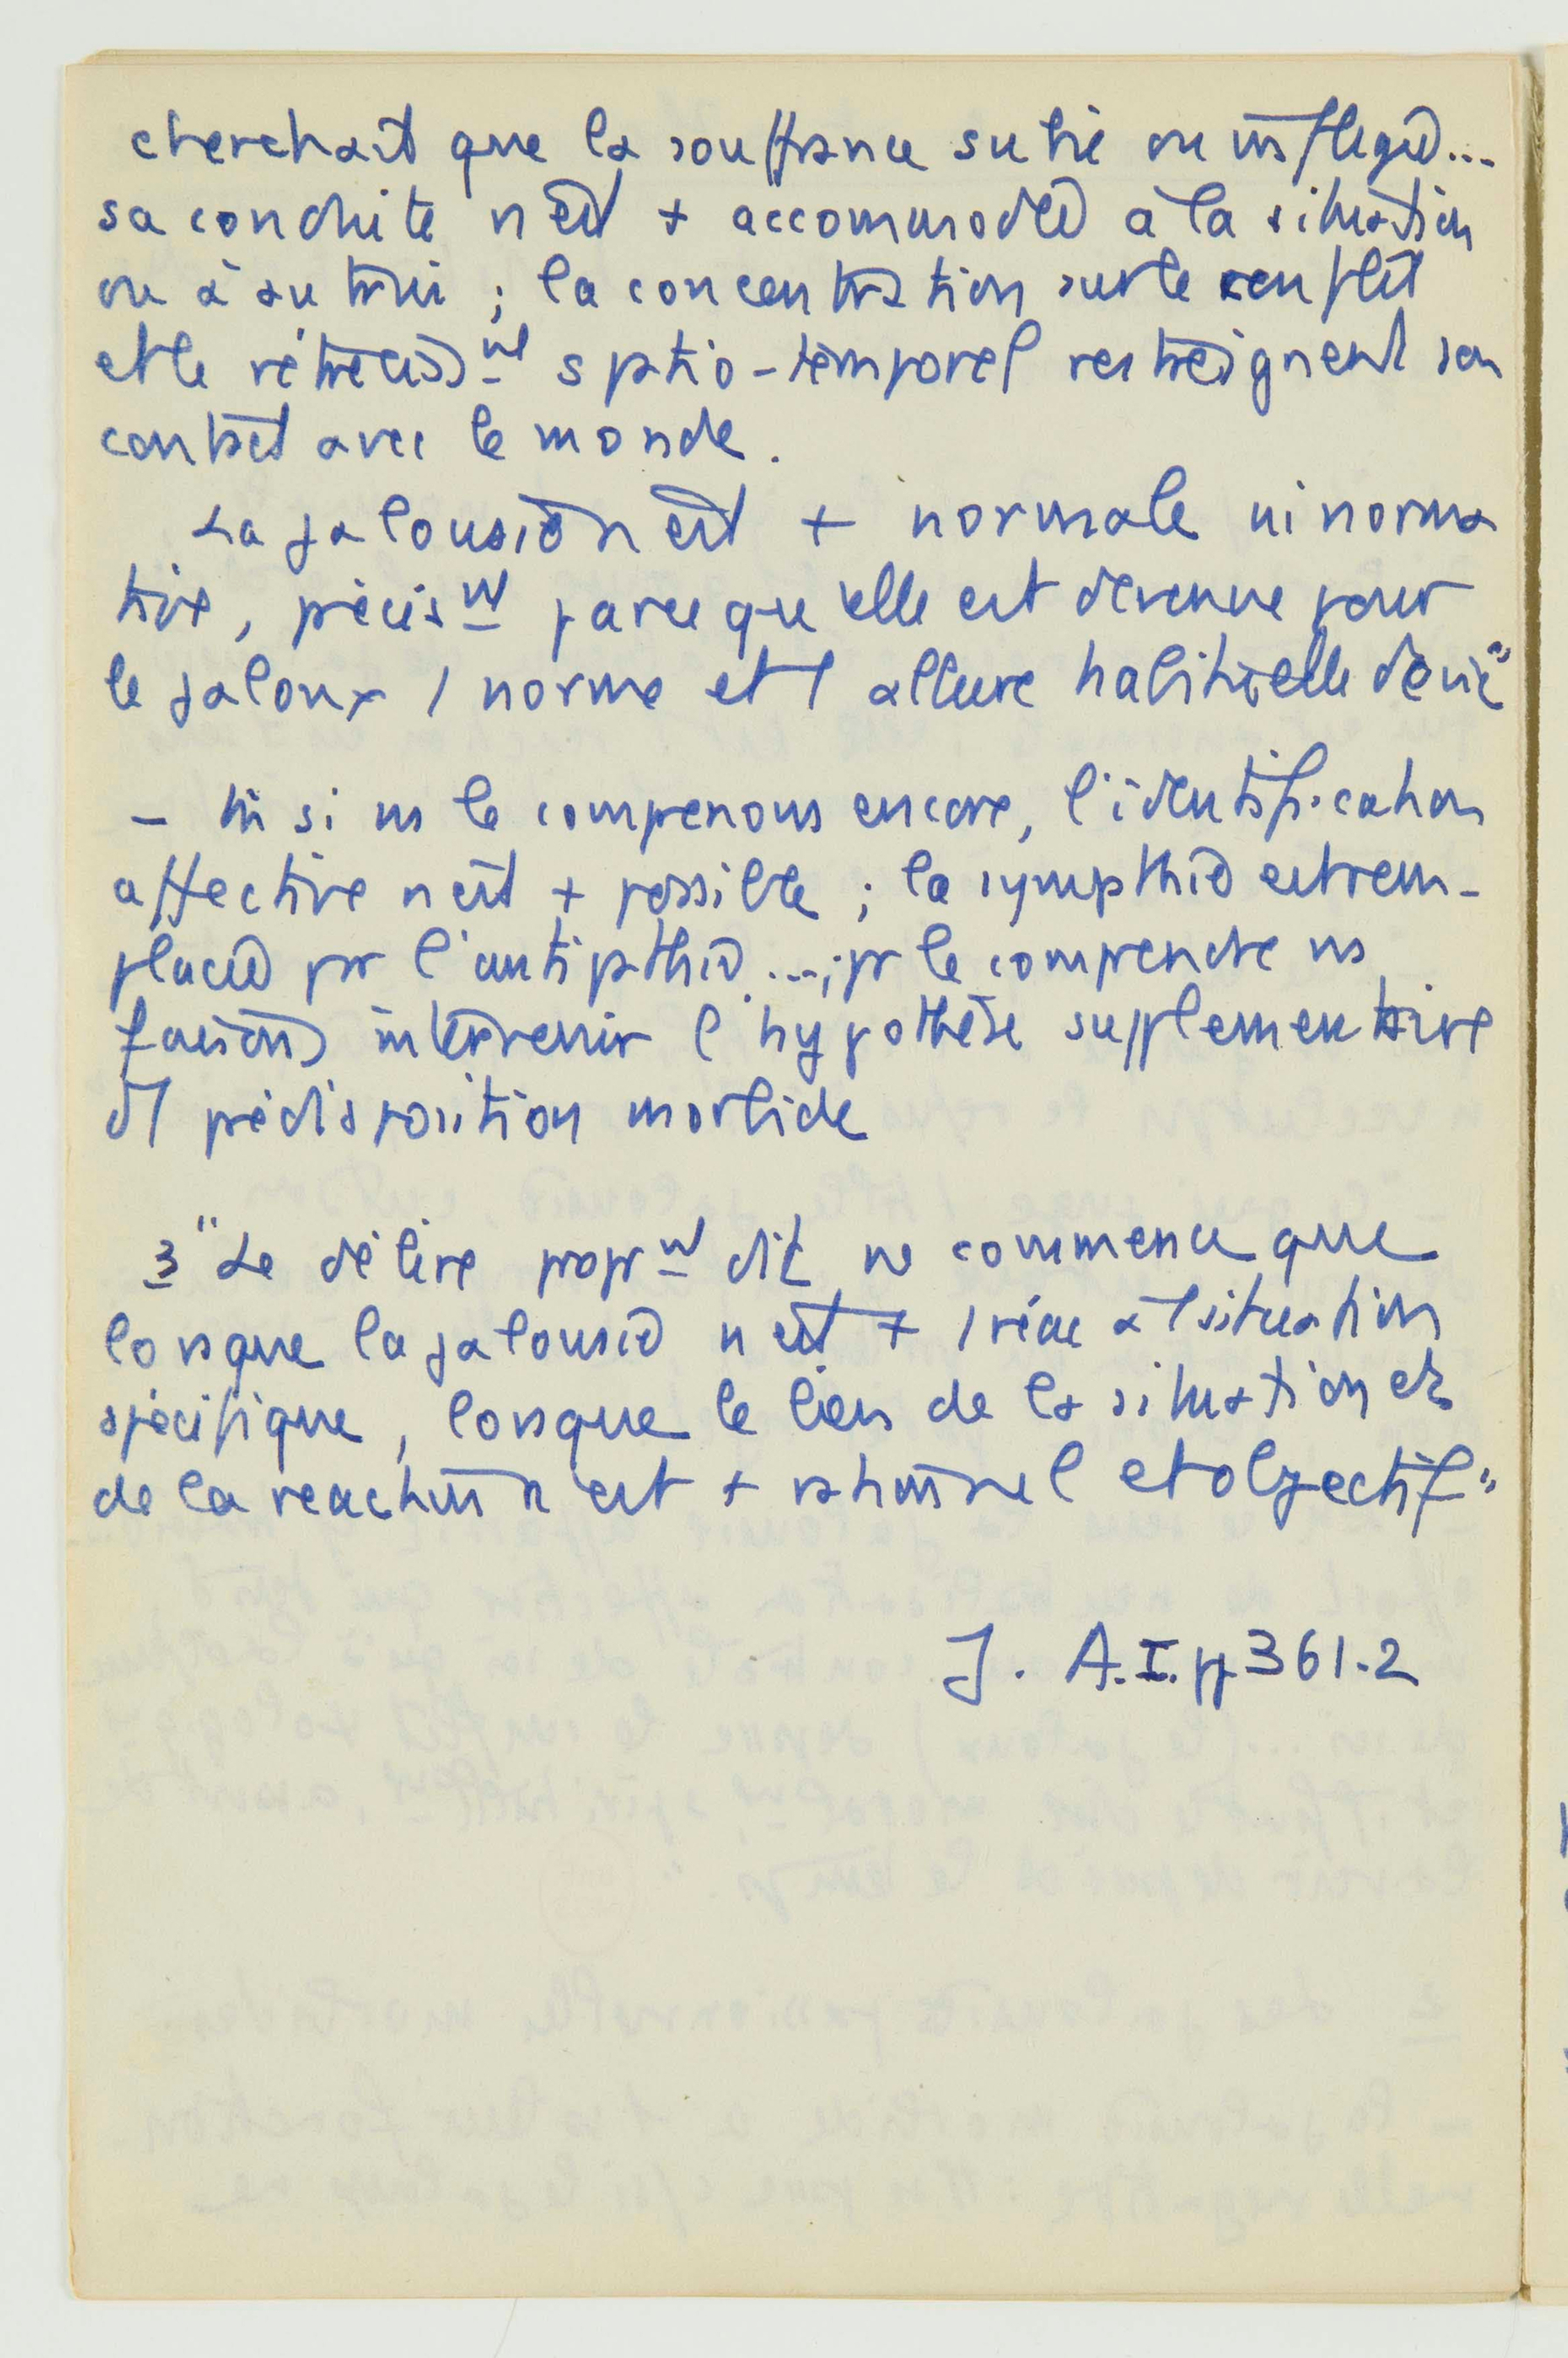 cherchait que la souffrance subie ou infligée...
sa conduite n'est + accommodée à la situation
ou à autrui ; la concentration sur le conflit
et le rétréciss^nt spatio-temporel restreignent son
contact avec le monde.
La jalousie n'est + normale ni norma
tive, précis^nt parce qu'elle est devenue pour
le jaloux / norme et / allure habituelle de vie"
- si ns le comprenons encore, l'identification
affective n'est + possible ; la sympathie est rem-
placée par l'antipathie...; pr le comprendre ns
faisons intervenir l'hypothèse supplémentaire
d/ prédisposition morbide
3 "Le délire propr^nt dit ne commence que
lorsque la jalousie n'est + / réac à / situation
spécifique, lorsque le lien de la situation et
de la réaction n'est + rationnel et objectif"
J. A. I. p 361.2